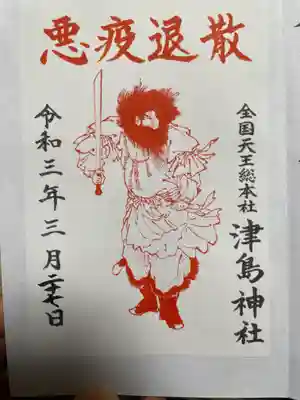 悪疫退散
全国天王総本社
津島神社
令和三年三月二十七日